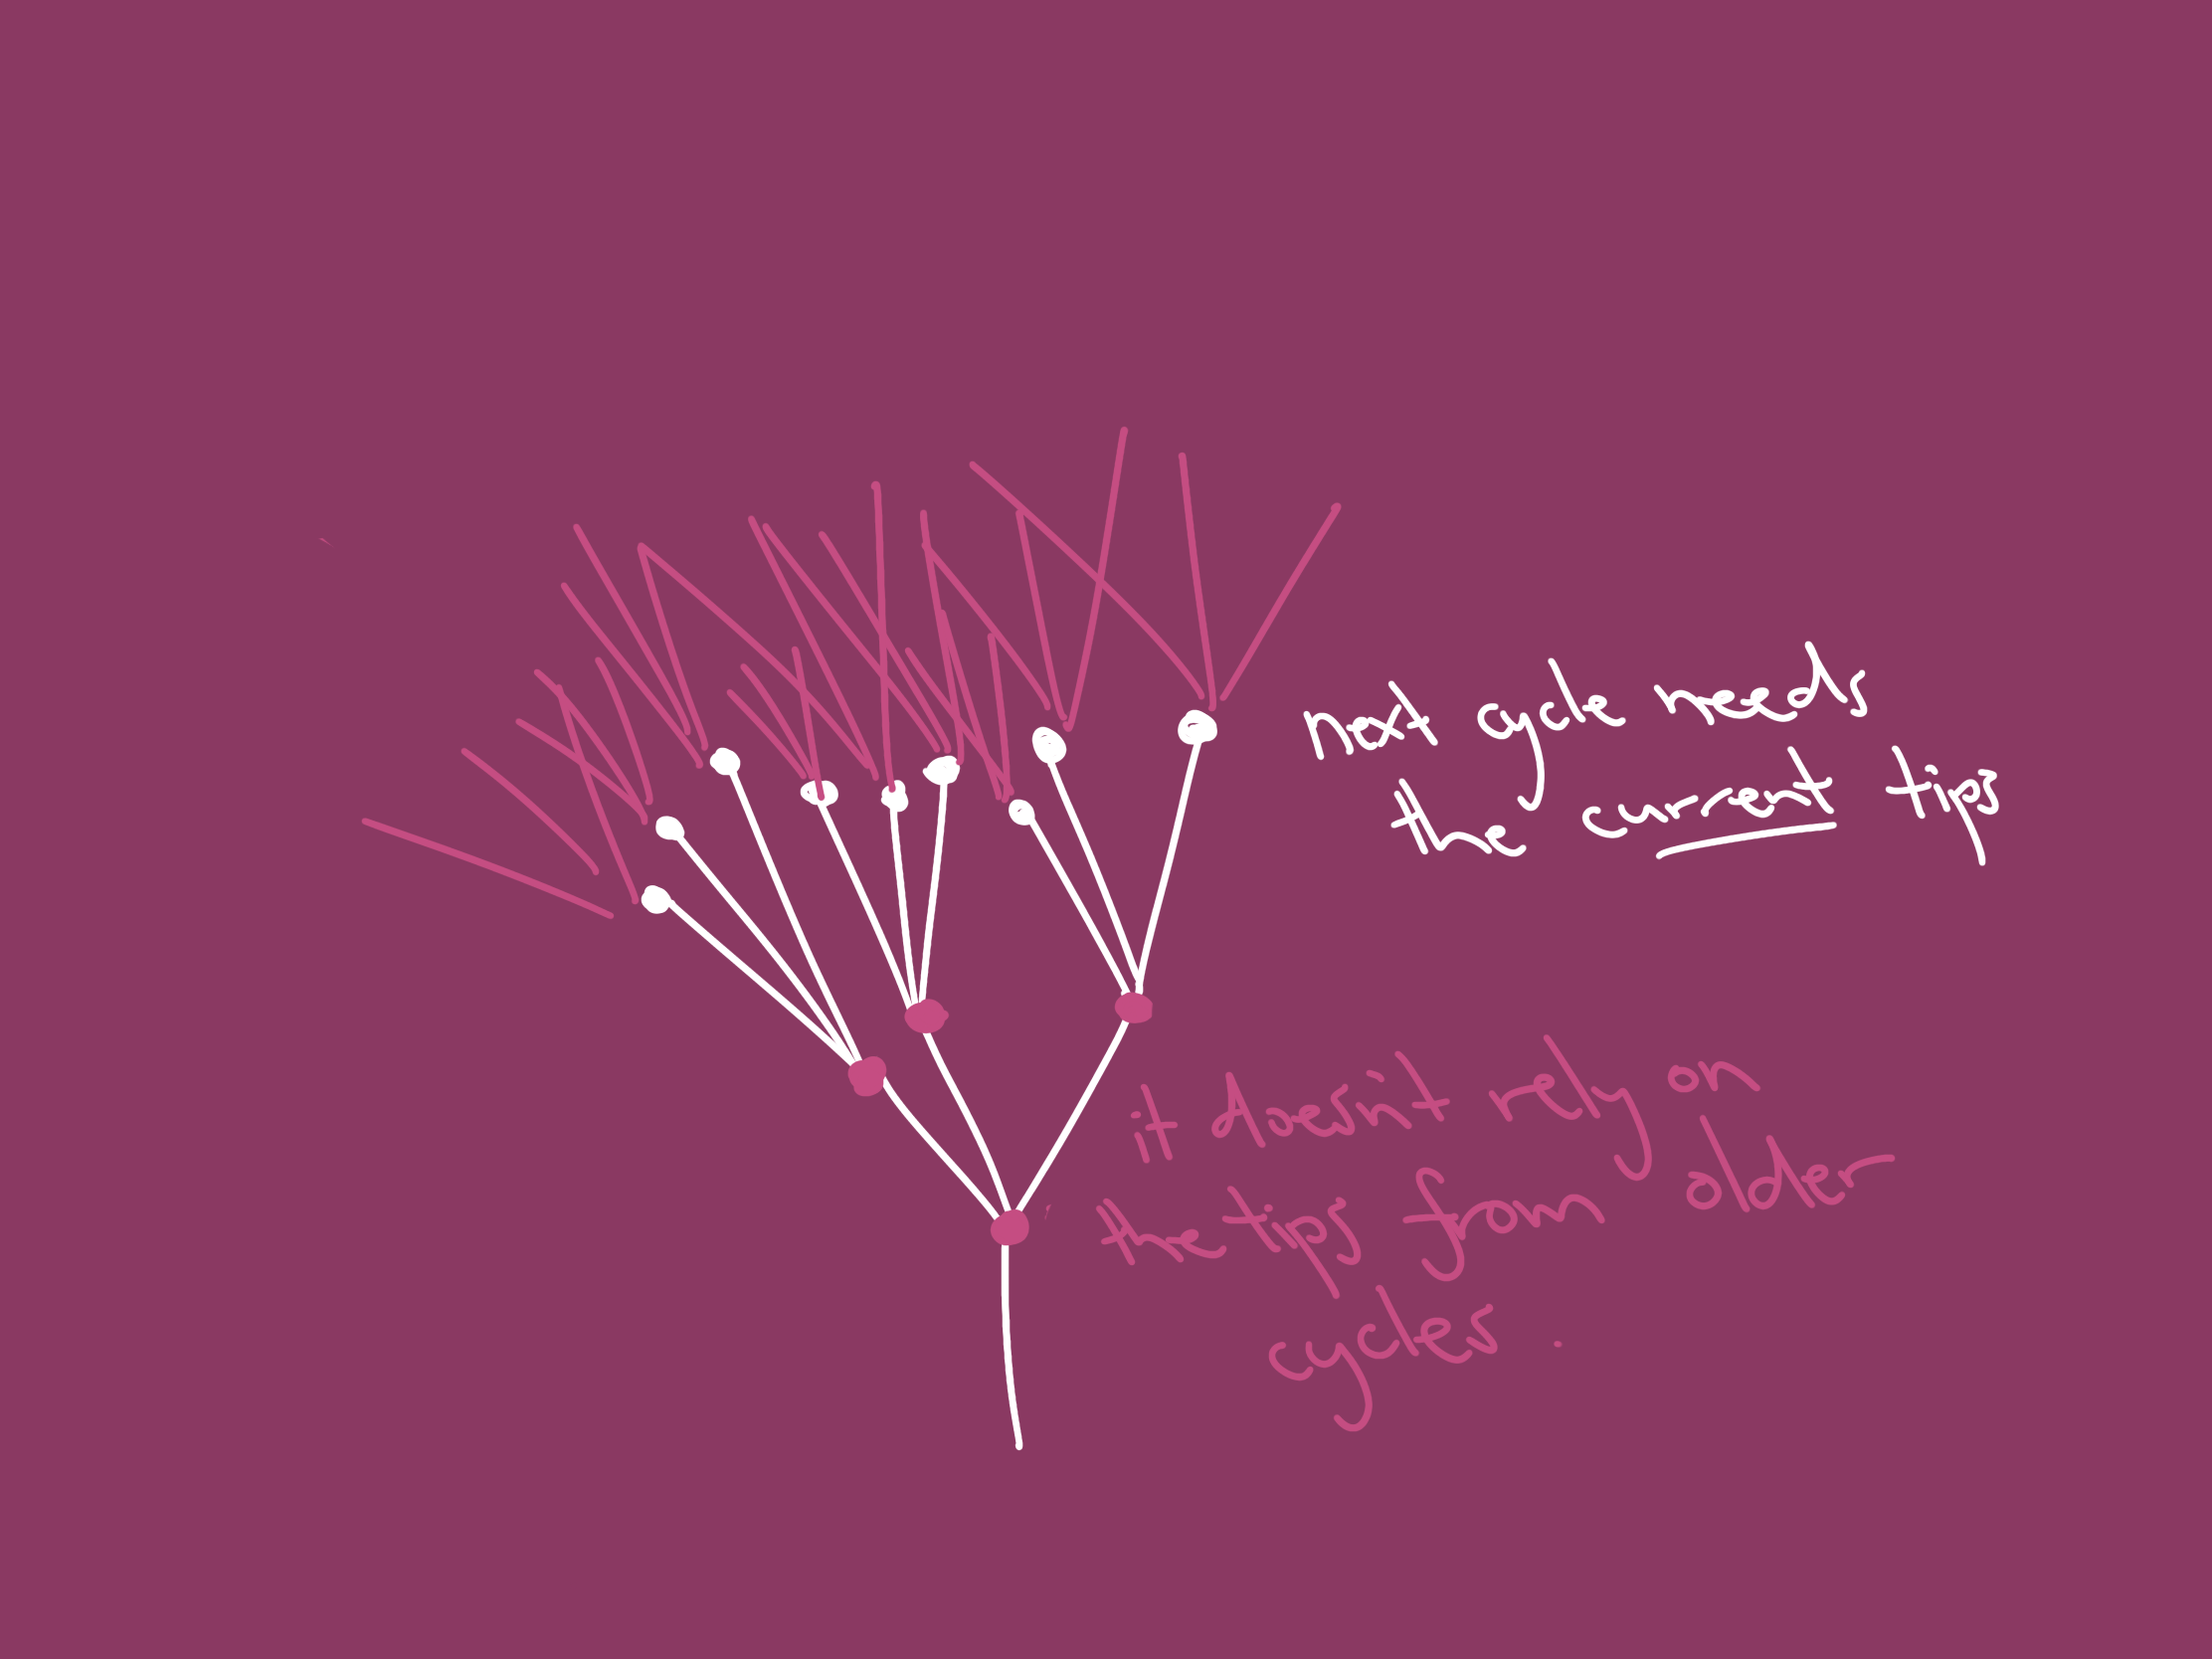 Next cycle needs
the current tips
it doesn't rely on
the tips from older
cycles.